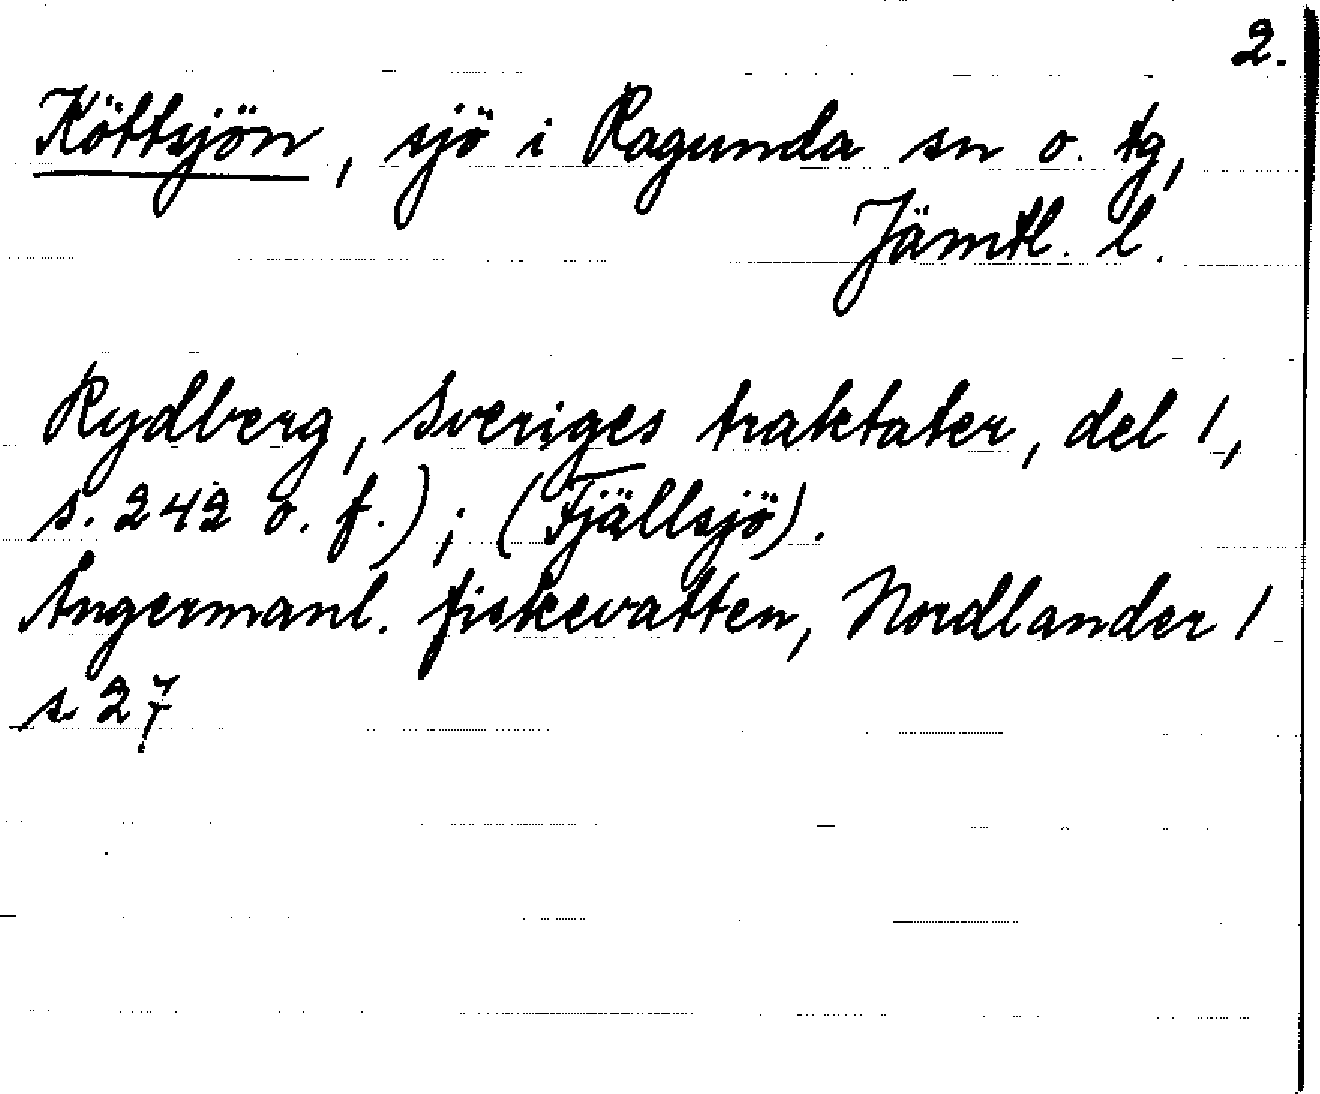 2.
Köttsjön, sjö i Ragunda sn o. tg,
Jämtl. l.
Rydberg, Sveriges traktater, del 1,
s. 242 o. f.); (Fjällsjö).
Ångermanl. fiskevatten, Nordlander 1
s. 27